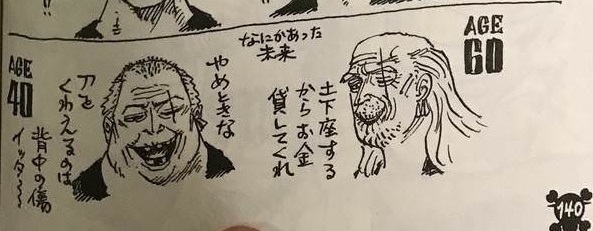 なにかあった
未来
AGE
60
土下座する
からお金
貸してくれ
AGE
40
やめときな
刀を
くわえるのは
背中の傷
140